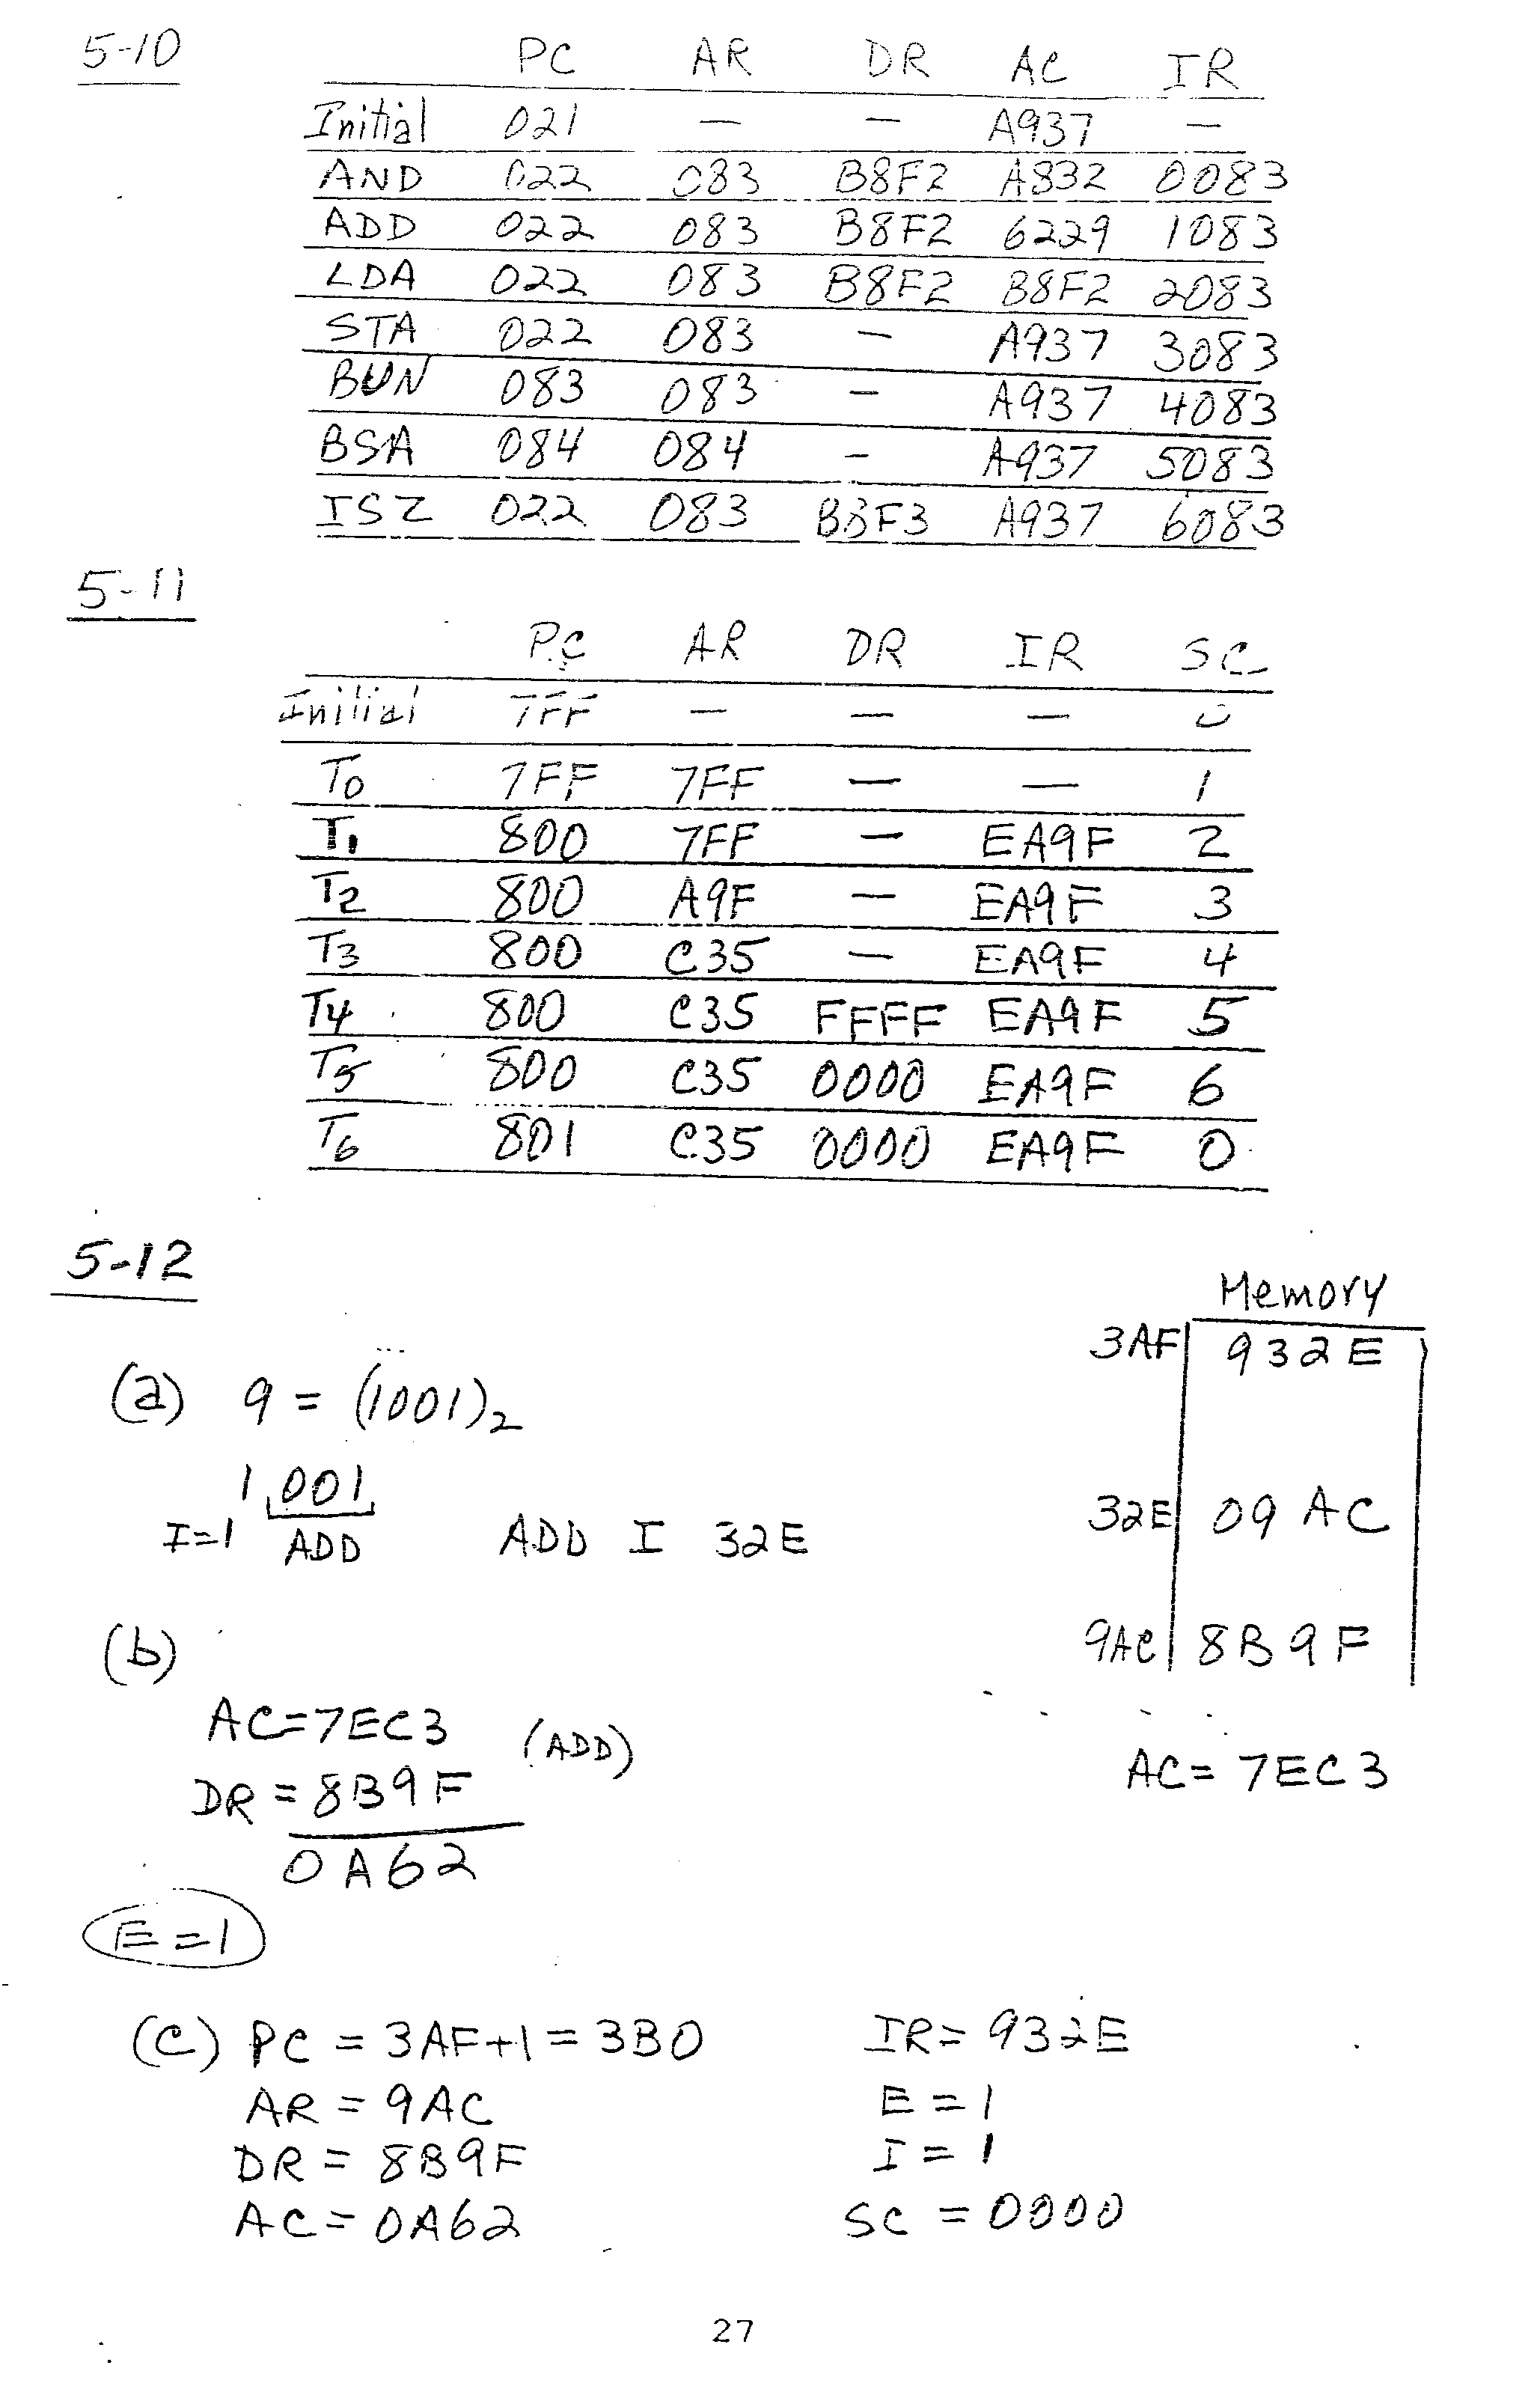 5-10
PC AR DR AC IR
Initial 021 — — A937 —
AND 022 083 B8F2 A832 0083
ADD 022 083 B8F2 6229 1083
LDA 022 083 B8F2 B8F2 2083
STA 022 083 — A937 3083
BUN 083 083 — A937 4083
BSA 084 084 — A937 5083
ISZ 022 083 B8F3 A937 6083
5-11
PC AR DR IR SC
Initial 7FF — — — 0
T0 7FF 7FF — — 1
T1 800 7FF — EA9F 2
T2 800 A9F — EA9F 3
T3 800 C35 — EA9F 4
T4 800 C35 FFFF EA9F 5
T5 800 C35 0000 EA9F 6
T6 801 C35 0000 EA9F 0
5-12
Memory
3AF 932E
(a) 9 = (1001)2
1 001
I=1 ADD ADD I 32E
32E 09AC
9AC 8B9F
(b)
AC=7EC3 (ADD)
DR = 8B9F
0A62
AC = 7EC3
E=1
(c) PC = 3AF+1 = 3B0 IR = 932E
AR = 9AC E = 1
DR = 8B9F I = 1
AC = 0A62 SC = 0000
27